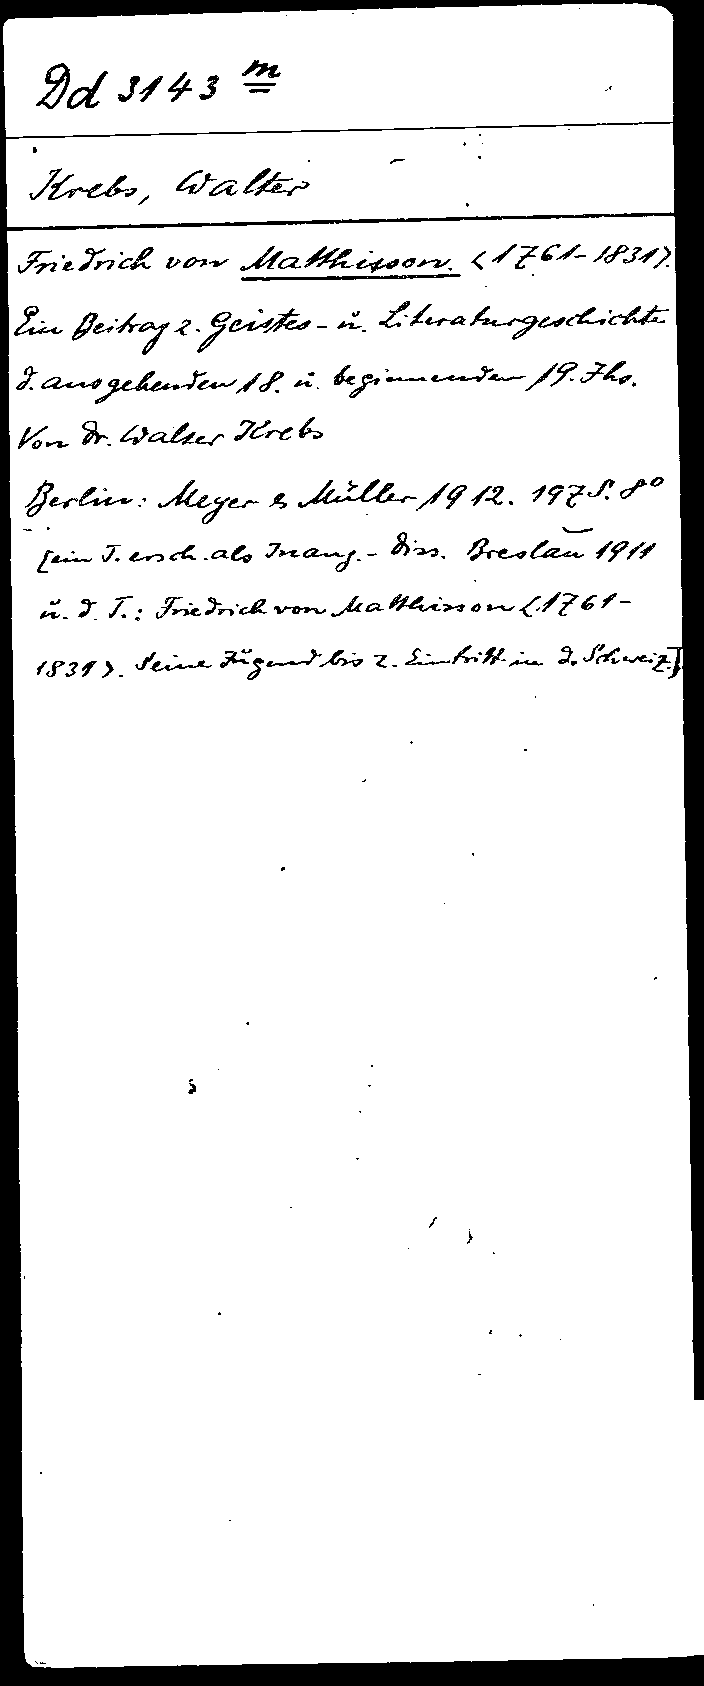 Dd 3143 m
Krebs, Walter
Friedrich von Matthisson. <1761-1831>.
Ein Beitrag z. Geistes- u. Literaturgeschichte
d. ausgehenden 18. u. beginnenden 19. Jhs.
Von Dr. Walter Krebs
Berlin: Meyer & Müller 1912. 197 S. 8°
[ein T. ersch. als Inaug.-Diss. Breslau 1911
u. d. T.: Friedrich von Matthisson <1761-
1831>. Seine Jugend bis z. Eintritt in d. Schweiz.]